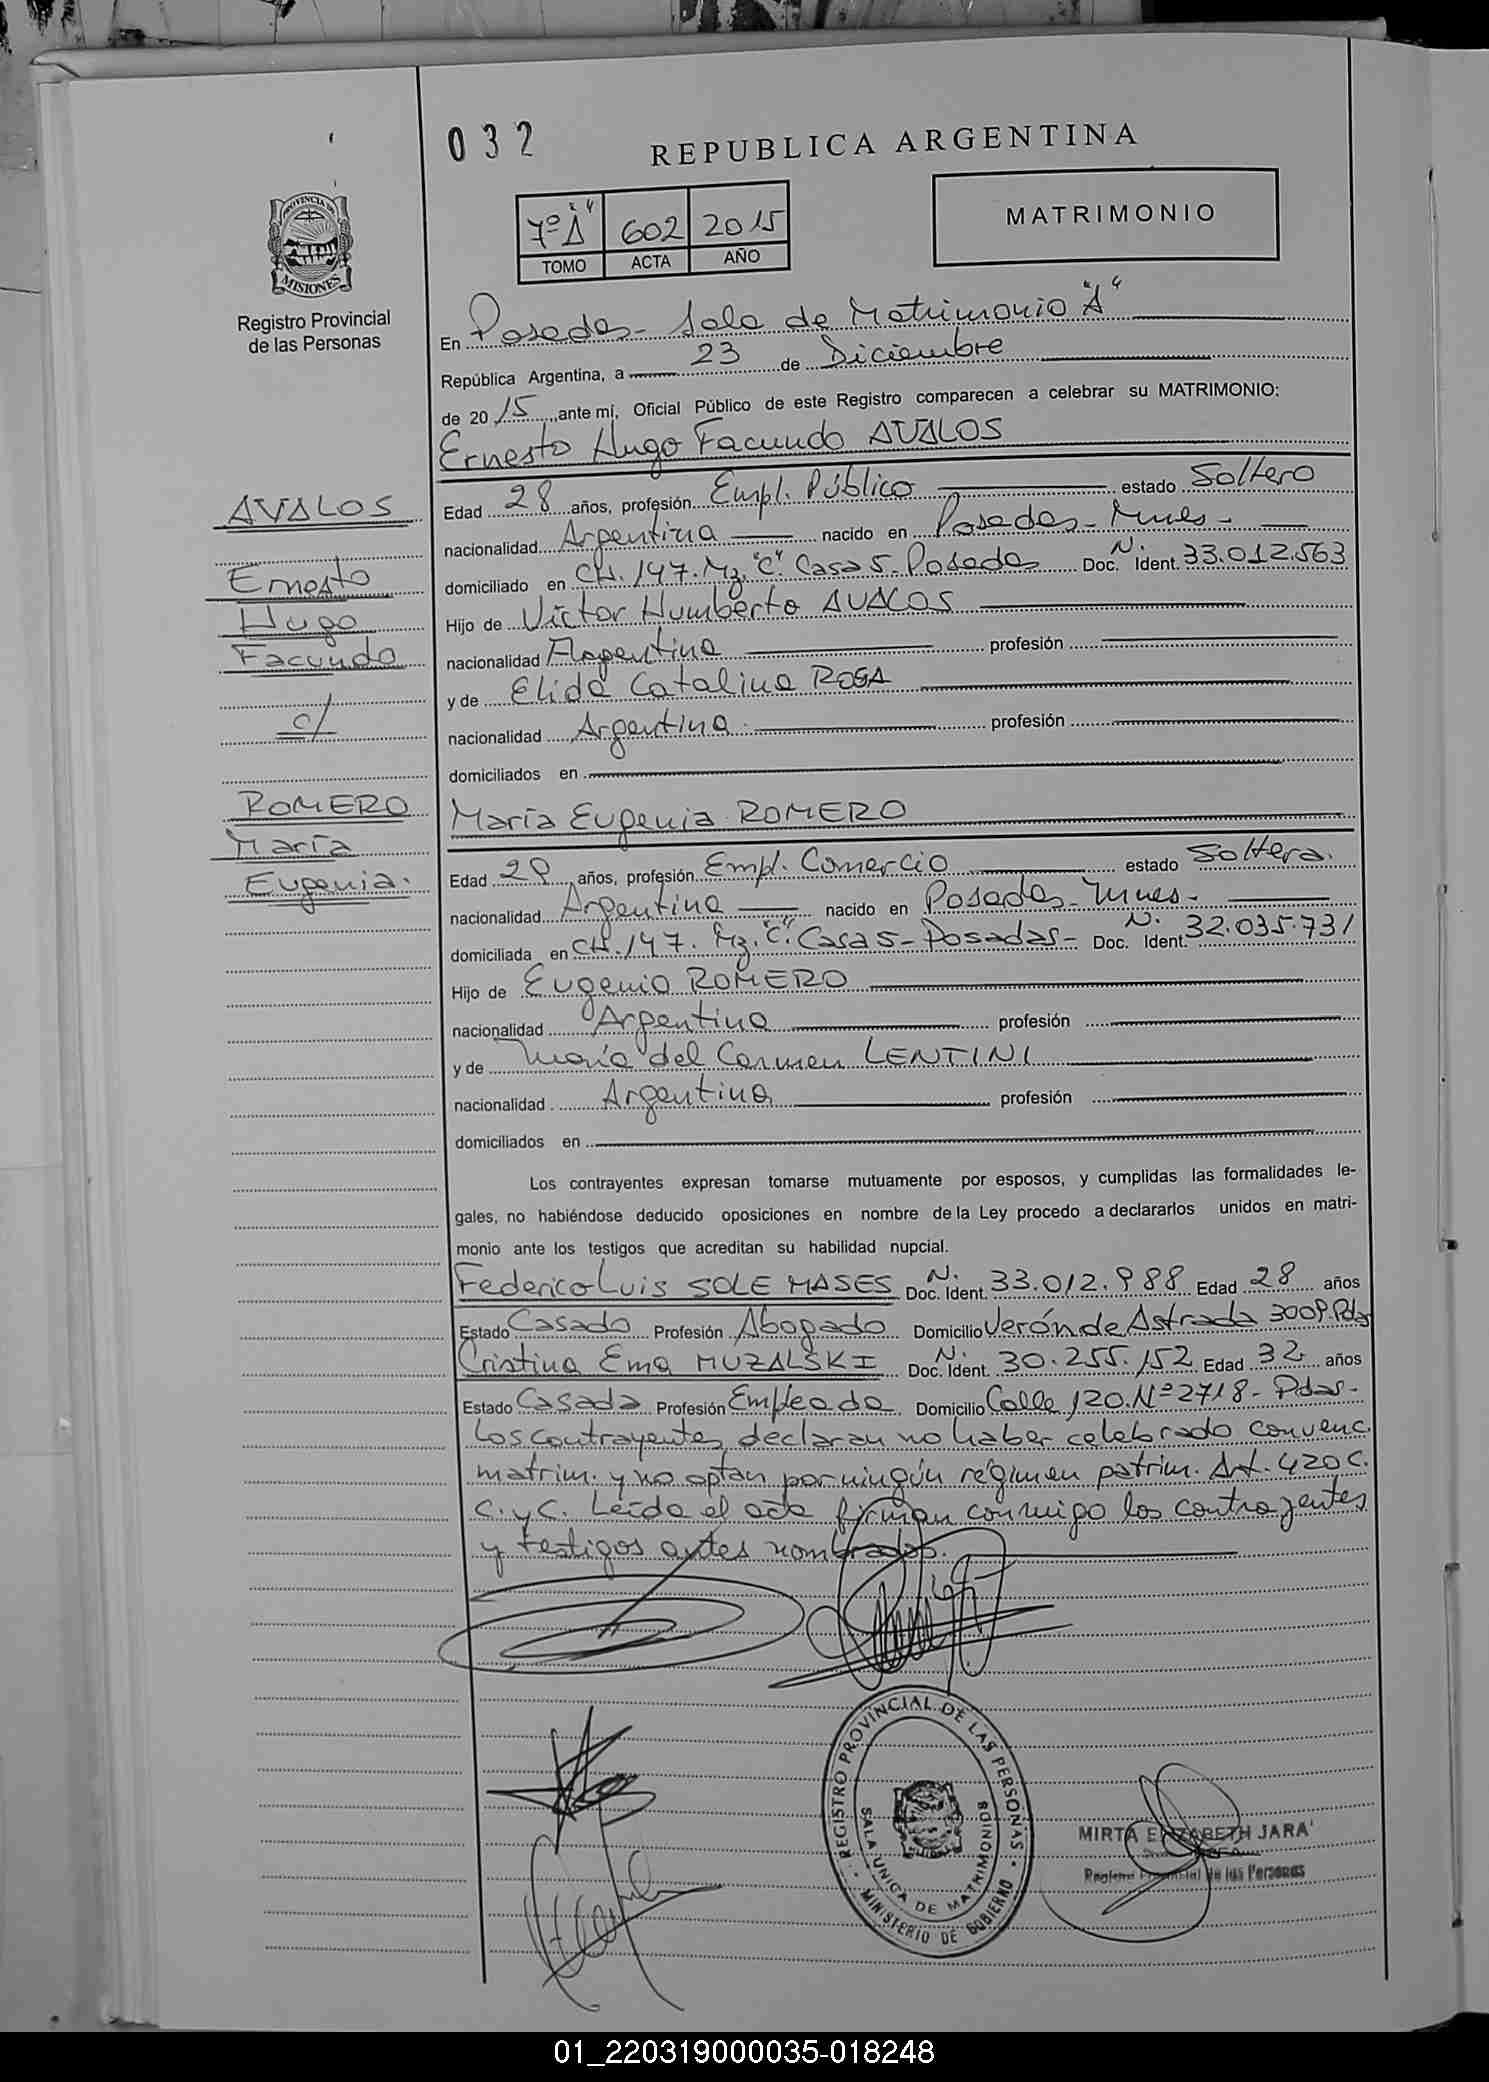 032
REPUBLICA ARGENTINA
7º "A" 602 2015
TOMO ACTA AÑO
MATRIMONIO
PROVINCIA DE
MISIONES
Registro Provincial
de las Personas
En Posadas - Sala de Matrimonio "A"
República Argentina, a 23 de Diciembre
de 2015, ante mí, Oficial Público de este Registro comparecen a celebrar su MATRIMONIO:
Ernesto Hugo Facundo AVALOS
AVALOS
Ernesto
Hugo
Facundo
c/
ROMERO
María
Eugenia.
Edad 28 años, profesión Empl. Público estado Soltero
nacionalidad Argentina nacido en Posadas - Mnes -
domiciliado en CH. 147. Mz. "C". Casa 5 - Posadas Doc. Ident. N. 33.012.563
Hijo de Víctor Humberto AVALOS
nacionalidad Argentina profesión
y de Elida Catalina ROSA
nacionalidad Argentina. profesión
domiciliados en
María Eugenia ROMERO
Edad 29 años, profesión Empl. Comercio estado Soltera.
nacionalidad Argentina nacido en Posadas - Mnes -
domiciliada en CH. 147. Mz. "C". Casa 5 - Posadas - Doc. Ident. N. 32.035.731
Hijo de Eugenio ROMERO
nacionalidad Argentina profesión
y de María del Carmen LENTINI
nacionalidad Argentina profesión
domiciliados en
Los contrayentes expresan tomarse mutuamente por esposos, y cumplidas las formalidades le-
gales, no habiéndose deducido oposiciones en nombre de la Ley procedo a declararlos unidos en matri-
monio ante los testigos que acreditan su habilidad nupcial.
Federico Luis SOLE MASES Doc. Ident. N. 33.012.988 Edad 28 años
Estado Casado Profesión Abogado Domicilio Verón de Astrada 3009. Pdas
Cristina Ema MUZALSKI Doc. Ident. N. 30.255.152 Edad 32 años
Estado Casada Profesión Empleada Domicilio Calle 120. Nº 2718 - Pdas -
Los contrayentes declaran no haber celebrado convenc.
matrim. y no optan por ningún régimen patrim. Art. 420 C.
C. y C. Leída el acta firman conmigo los contrayentes
y testigos antes nombrados.
REGISTRO PROVINCIAL DE LAS PERSONAS
SALA UNICA DE MATRIMONIOS
MINISTERIO DE GOBIERNO
MIRTA ELIZABETH JARA
Registro Provincial de las Personas
01_220319000035-018248